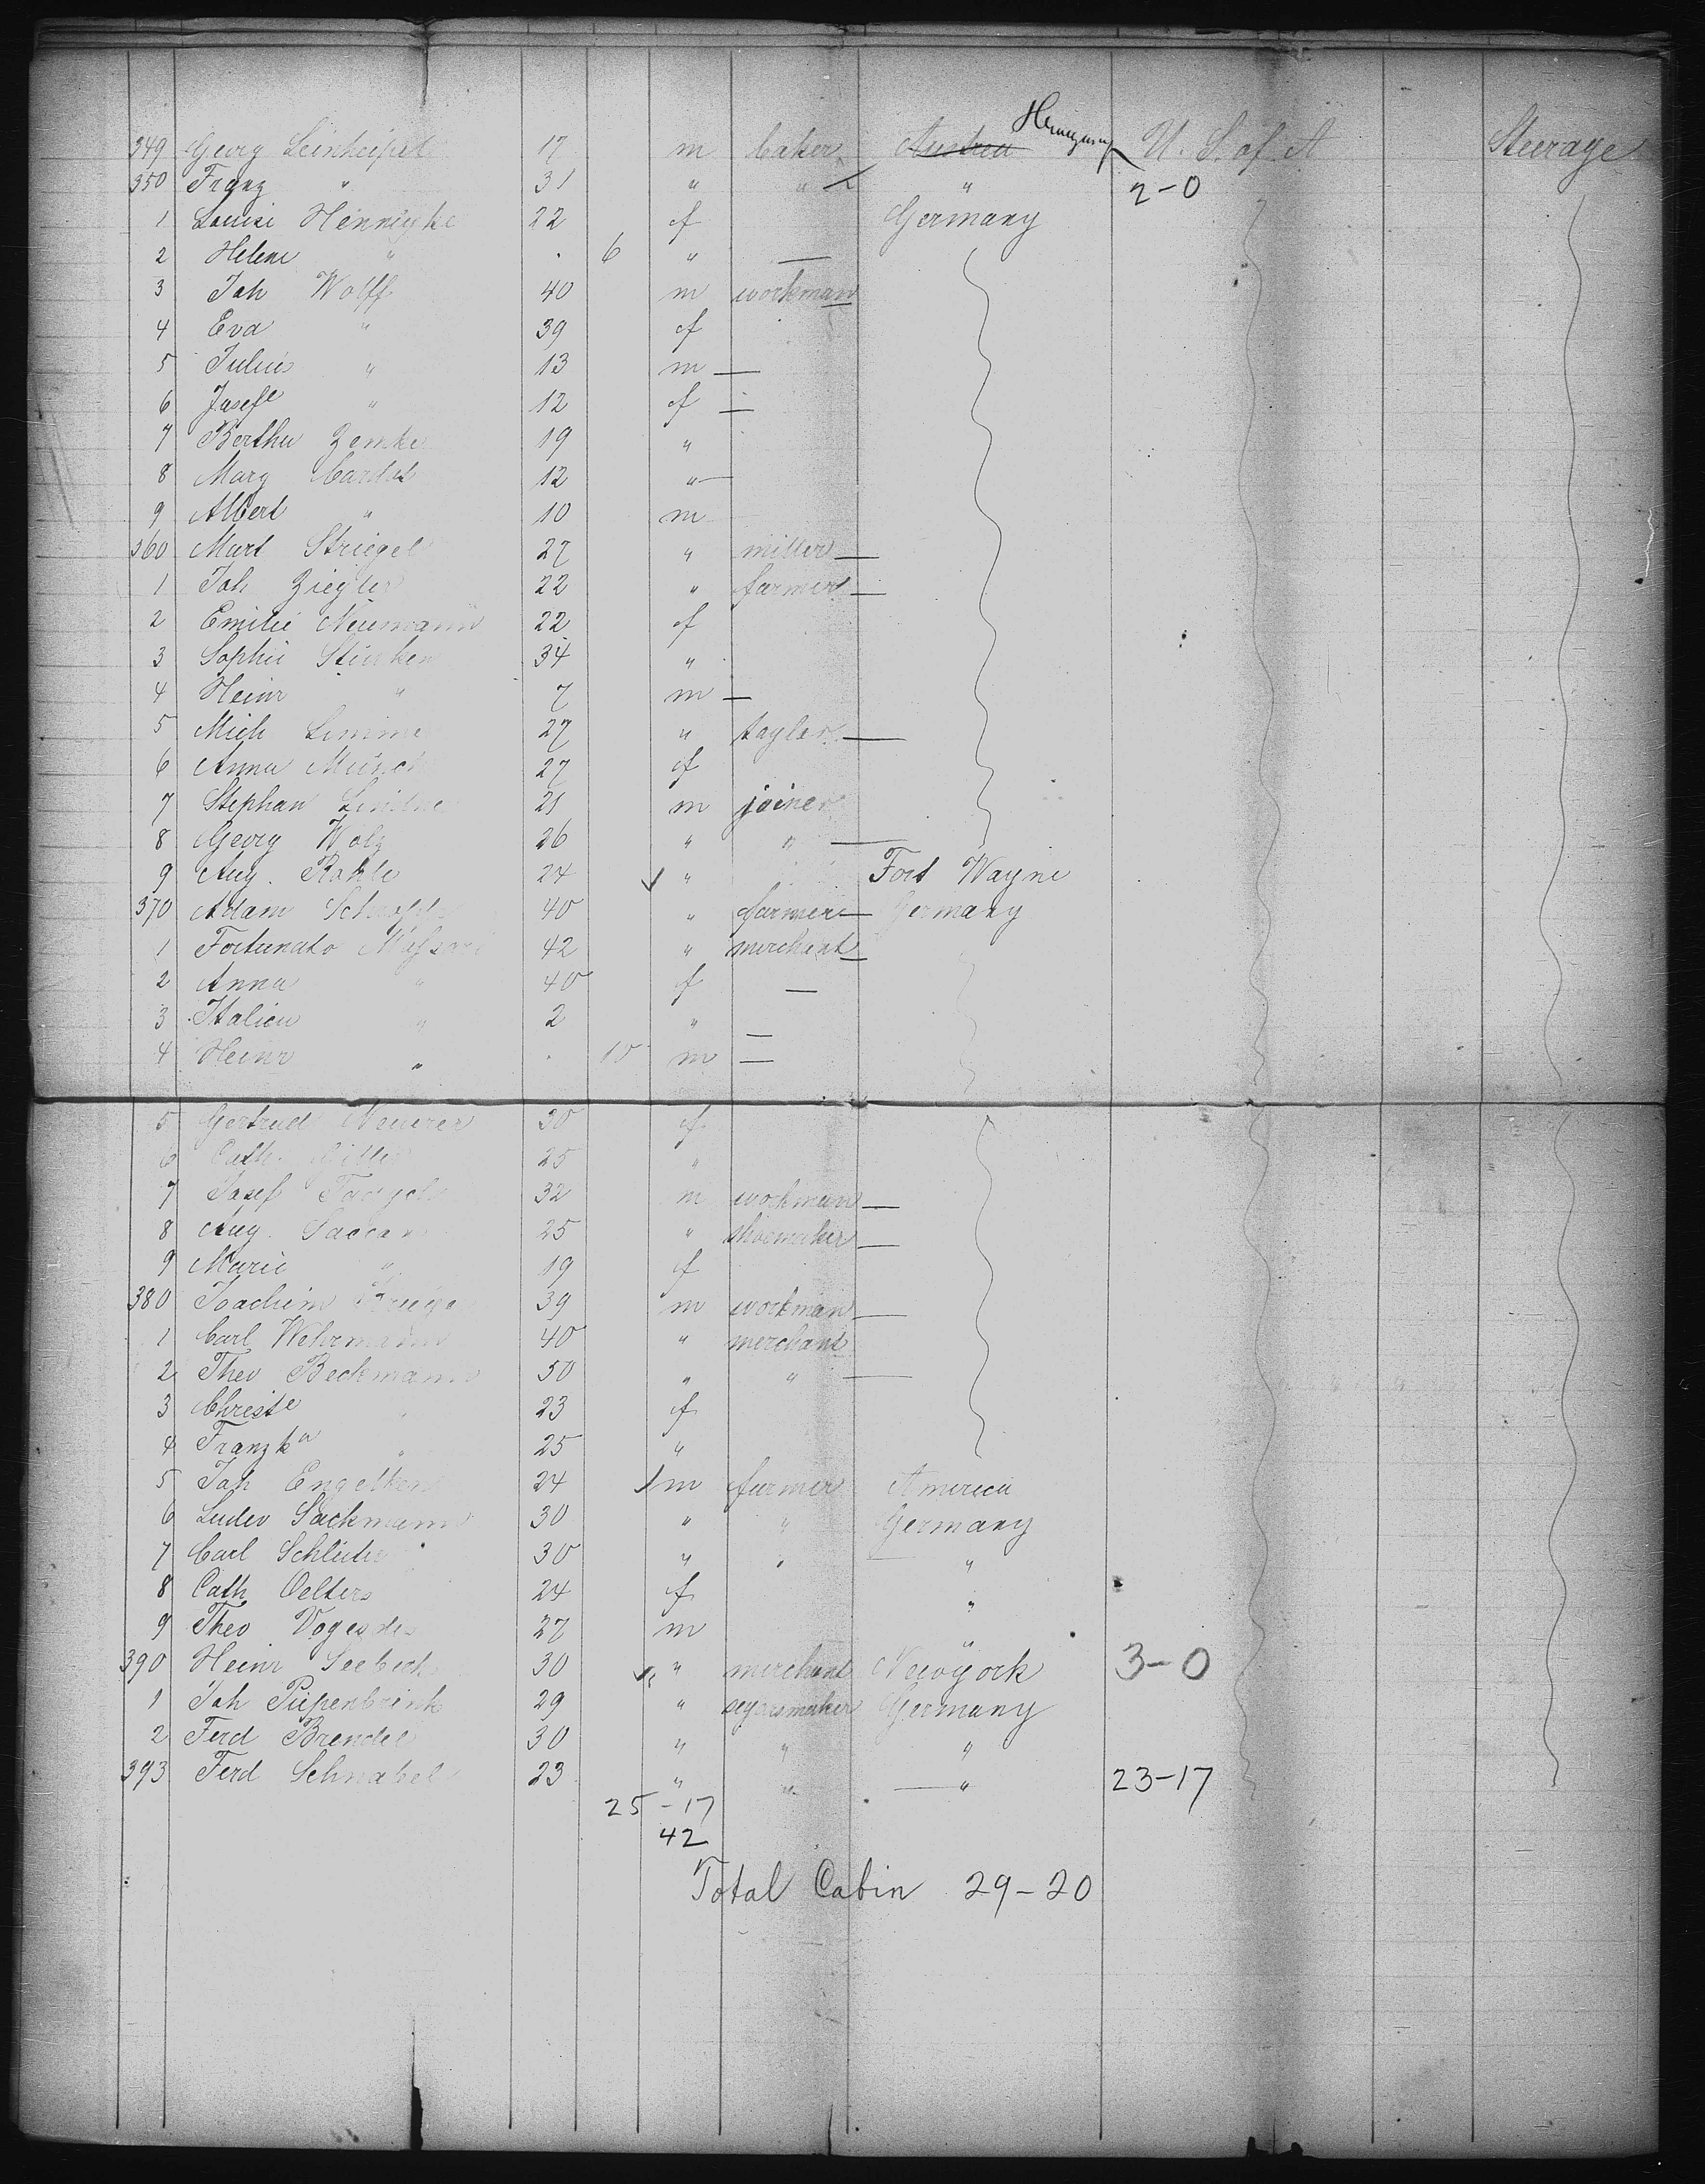 Hungary
349 Georg 17 m baker Austria U. S. of A Steerage
350 Franz " 31 " " " 2-0
1 Louise Hennigke 22 f Germany
2 Helene " . 6 " —
3 Joh Wolff 40 m workman
4 Eva " 39 f
5 Julius " 13 m —
6 Josefe " 12 f —
7 Bertha Zemke 19 "
8 Mary 12 "
9 Albert " 10 m
360 Mart Striegel 27 " miller —
1 Joh Ziegler 22 " farmer —
2 Emilie Neumann 22 f
3 Sophie 34 "
4 Heinr " 7 m —
5 Mich 27 " taylor —
6 Anna Münch 27 f
7 Stephan 21 m joiner
8 Georg Wolz 26 " " —
9 Aug. Rahle 24 " Fort Wayne
370 Adam 40 " farmer — Germany
1 Fortunato 42 " merchant
2 Anna " 40 f —
3 Italien " 2 " —
4 Heinr " . 10 m —
5 Gertrud Neuerer 30 f
6 Cath. 25 "
7 Josef 32 m workman —
8 Aug. 25 " shoemaker —
9 Marie " 19 f
380 Joachim 39 m workman —
1 Carl Wehrmann 40 " merchant
2 Theo Beckmann 50 " " —
3 Christe " 23 f
4 Franzka " 25 "
5 Joh Engelken 24 m farmer America
6 Luder Sackmann 30 " " Germany
7 Carl Schlüter 30 " " "
8 Cath Oelters 24 f "
9 Theo 27 m "
390 Heinr Seebeck 30 " merchant Newyork 3-0
1 Joh Piepenbrink 29 " segarsmaker Germany
2 Ferd Brendel 30 " " "
393 Ferd Schnabel 23 " " — " 23-17
25-17
42
Total Cabin 29-20